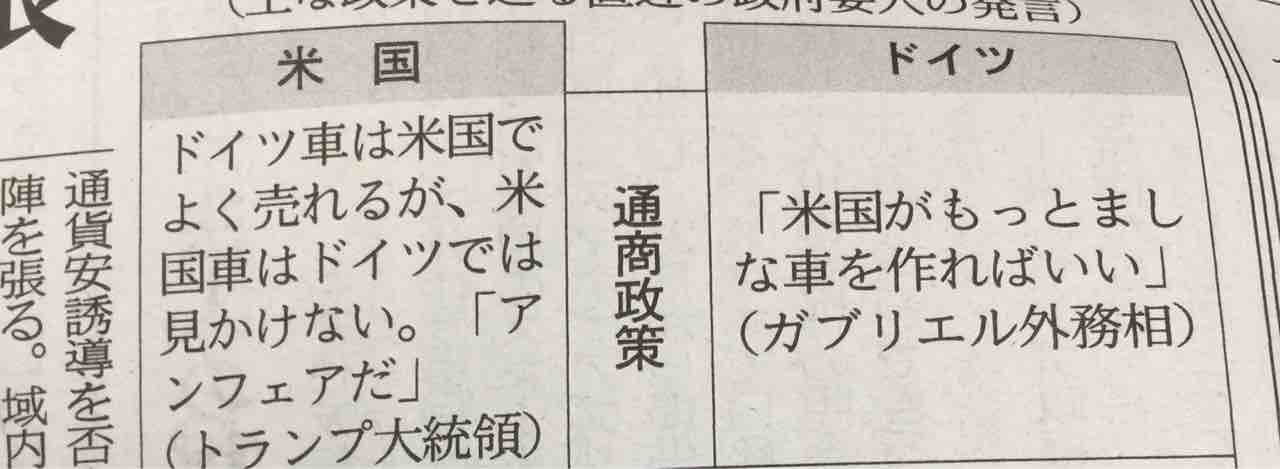 (主な政策を巡る直近の政府要人の発言)
米 国
ドイツ車は米国で
よく売れるが、米
国車はドイツでは
見かけない。「ア
ンフェアだ」
(トランプ大統領)
通商政策
ドイツ
「米国がもっとまし
な車を作ればいい」
(ガブリエル外務相)
通貨安誘導を否
陣を張る。域内